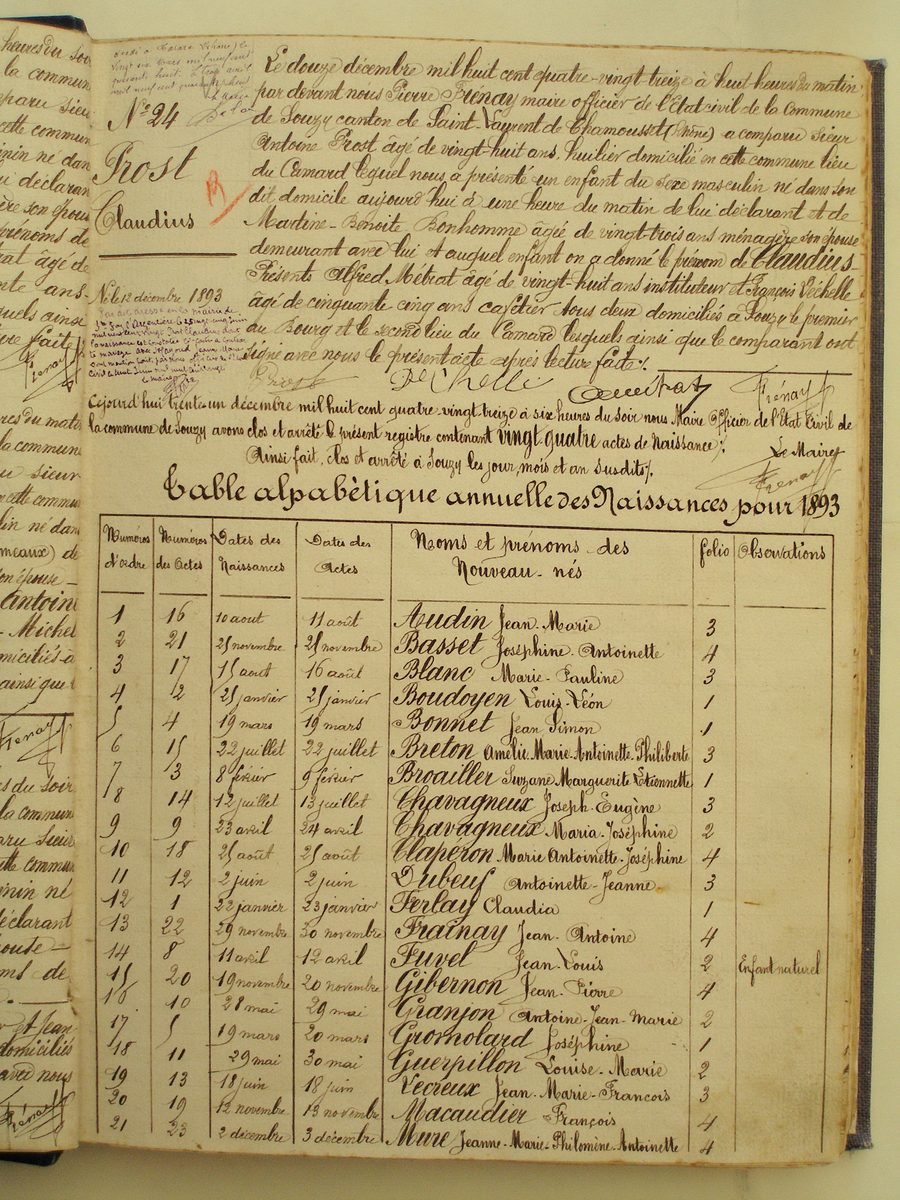 heures du soir
la commune
comparu sieur
cette commune
né dan
déclaran
son épouse
prénoms de
âgé de
ans
ainsi
faite
la commun
sieur
cette commun
né dan
de
son épouse
Antoine
Michel
domiciliés à
ainsi que
du soir
la commun
sieur
cette commun
né
déclarant
épouse
de
et Jean
domiciliés
avec nous
N° 24
Prost
Claudius
N. le 12 décembre 1893
Le douze décembre mil huit cent quatre-vingt treize à huit heures du matin
par devant nous Pierre Brenay maire officier de l'État civil de la Commune
de Souzy canton de Saint-Laurent de Chamousset (Rhône) a comparu Sieur
Antoine Prost âgé de vingt-huit ans huilier domicilié en cette commune lieu
du Camard lequel nous a présenté un enfant du sexe masculin né dans son
dit domicile aujourd'hui à une heure du matin de lui déclarant et de
Martine-Benoite Bonhomme âgée de vingt-trois ans ménagère son épouse
demeurant avec lui et auquel enfant on a donné le prénom de Claudius-
Présents Alfred Métrat âgé de vingt-huit ans instituteur et François Déchelle
âgé de cinquante cinq ans cafetier tous deux domiciliés à Souzy le premier
au Bourg et le second lieu du Camard lesquels ainsi que le comparant ont
signé avec nous le présent acte après lecture faite ./.
Prost Dechelle Métrat Brenay
Cejourd'hui trente-un décembre mil huit cent quatre vingt treize à six heures du soir nous Maire Officier de l'État Civil de
la commune de Souzy avons clos et arrêté le présent registre contenant vingt quatre actes de Naissance ;
Ainsi fait, clos et arrêté à Souzy les jour, mois et an susdits ./. Le Maire
Brenay
Table alphabètique annuelle des Naissances pour 1893
Numéros d'ordre Numéros des Actes Dates des Naissances Dates des Actes Noms et prénoms des Nouveau-nés folio Observations
1 16 10 aout 11 août Audin Jean-Marie 3
2 21 25 novembre 25 novembre Basset Joséphine-Antoinette 4
3 17 15 aout 16 août Blanc Marie-Pauline 3
4 2 25 janvier 25 janvier Boudoyen Louis-Léon 1
5 4 19 mars 19 mars Bonnet Jean Simon 1
6 15 22 juillet 22 juillet Breton Amélie-Marie-Antoinette-Philiberte 3
7 3 8 février 9 février Broailler Suzane Marguerite Etiennette 1
8 14 12 juillet 13 juillet Chavagneux Joseph-Eugène 3
9 9 23 avril 24 avril Chavagneux Maria-Joséphine 2
10 18 25 août 25 août Claperon Marie Antoinette-Joséphine 4
11 12 2 juin 2 juin Dubeuf Antoinette-Jeanne 3
12 1 22 janvier 23 janvier Ferlay Claudia 1
13 22 29 novembre 30 novembre Frainay Jean-Antoine 4
14 8 11 avril 12 avril Fuvel Jean-Louis 2 Enfant naturel
15 20 19 novembre 20 novembre Gibernon Jean-Pierre 4
16 10 28 mai 29 mai Granjon Antoine-Jean-Marie 2
17 5 19 mars 20 mars Gromolard Joséphine 1
18 11 29 mai 30 mai Guerpillon Louise-Marie 2
19 13 18 juin 18 juin Lecreux Jean-Marie-François 3
20 19 12 novembre 13 novembre Macaudier François 4
21 23 2 décembre 3 décembre Mure Jeanne-Marie-Philomène-Antoinette 4